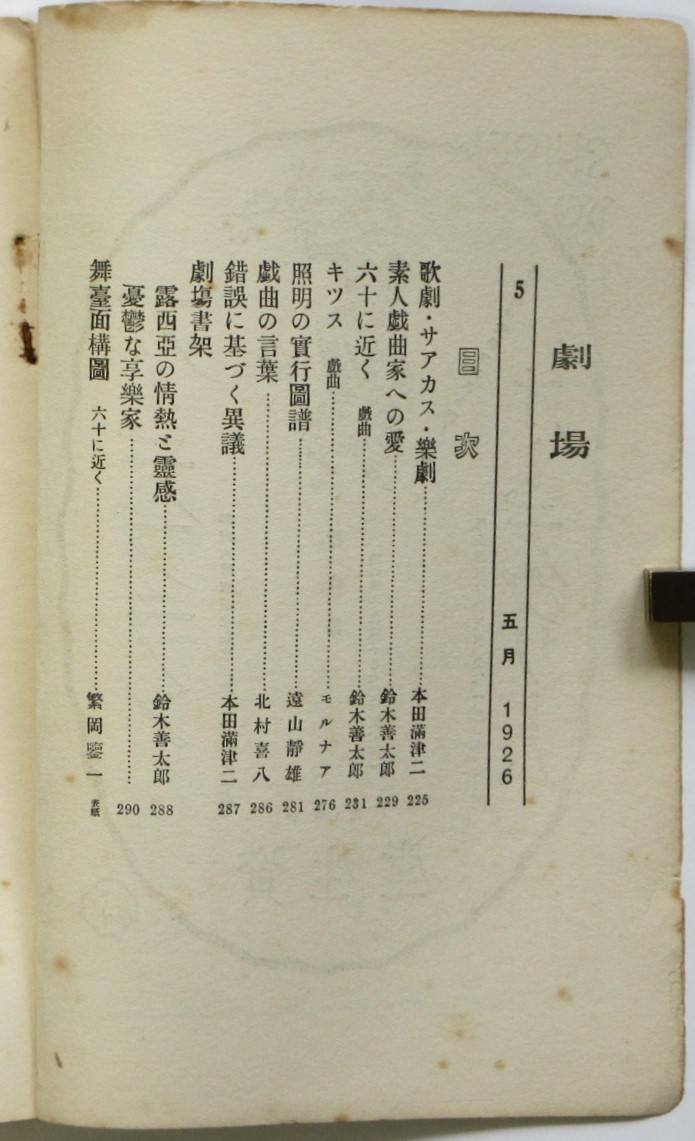 劇場
5 五月 1926
目次
歌劇・サアカス・樂劇 本田滿津二 225
素人戯曲家への愛 鈴木善太郎 229
六十に近く 戯曲 鈴木善太郎 231
キツス 戯曲 モルナア 276
照明の實行圖譜 遠山靜雄 281
戯曲の言葉 北村喜八 286
錯誤に基づく異議 本田滿津二 287
劇塲書架
露西亞の情熱と靈感 鈴木善太郎 288
憂鬱な享樂家 290
舞臺面構圖 六十に近く 繁岡鑒一 表紙